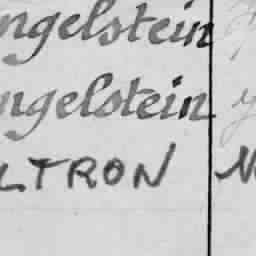 ngelstein
ngelstein
LTRON